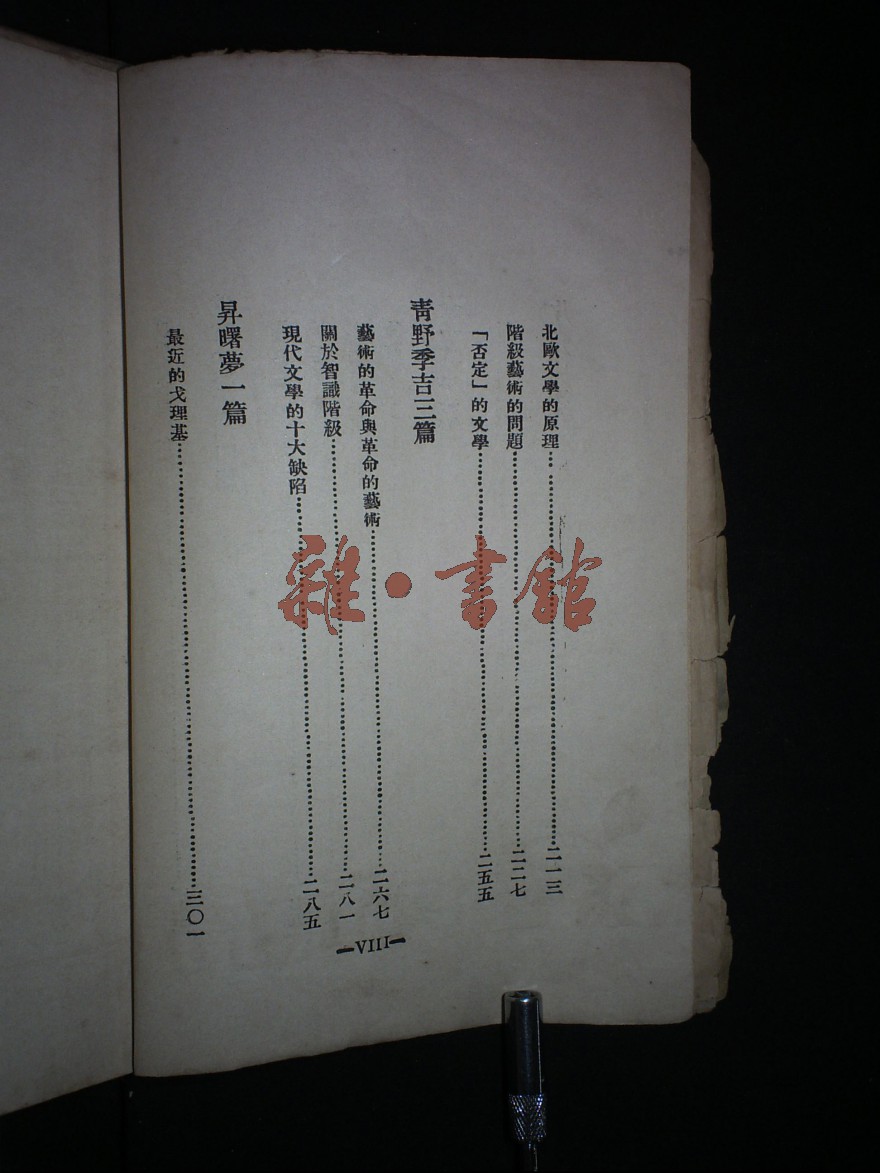 北歐文學的原理……二一三
階級藝術的問題……二二七
「否定」的文學……二五五
青野季吉三篇
藝術的革命與革命的藝術……二六七
關於智識階級……二八一
現代文學的十大缺陷……二八五
昇曙夢一篇
最近的戈理基……三〇一
—VIII—
雜·書館